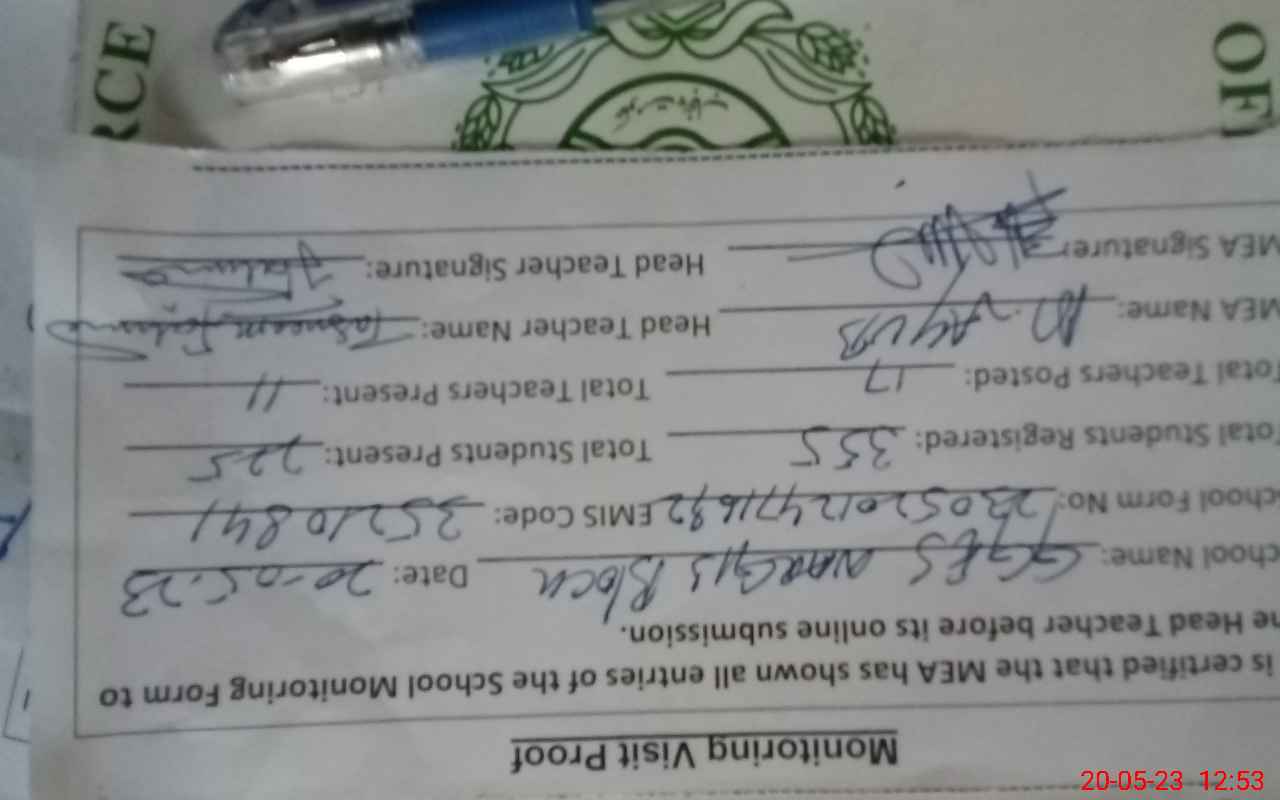 Monitoring Visit Proof
is certified that the MEA has shown all entries of the School Monitoring Form to
he Head Teacher before its online submission.
chool Name: GGES NARGIS Block Date: 20-05-23
chool Form No: EMIS Code: 35210841
Total Students Registered: 355 Total Students Present: 225
Total Teachers Posted: 17 Total Teachers Present: 11
MEA Name: M. AYUB Head Teacher Name: Tasneem Fatima
MEA Signature: Head Teacher Signature:
RCE
20-05-23 12:53